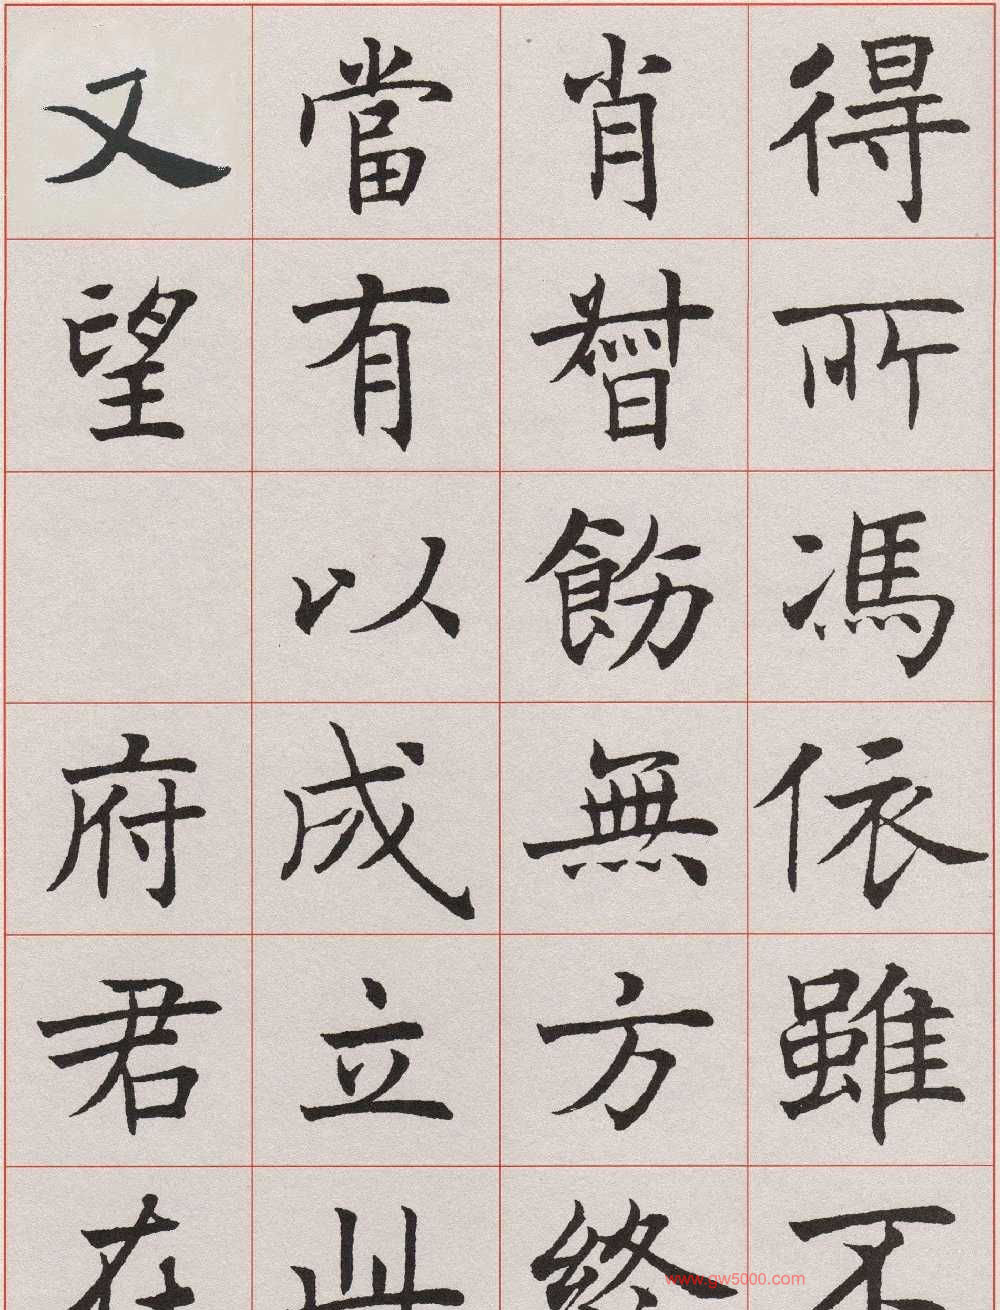 得所馮依雖不
肖朁飭無方終
當有以成立此
又望府君在
www.gw5000.com